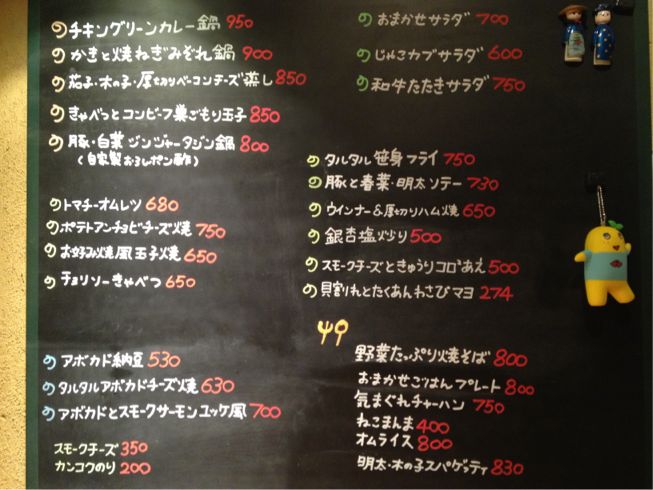 のチキングリーンカレー鍋 950
のかきと焼ねぎみぞれ鍋 900
の茄子・木の子・厚切りベーコンチーズ蒸し 850
のきゃべつとコンビーフ巣ごもり玉子 850
の豚・白菜ジンジャータジン鍋 800
(自家製おろしポン酢)
のトマチーオムレツ 680
のポテトアンチョビチーズ焼 750
のお好み焼風玉子焼 650
のチョリソーきゃべつ 650
のアボカド納豆 530
のタルタルアボカドチーズ焼 630
のアボカドとスモークサーモンユッケ風 700
スモークチーズ 350
カンコクのり 200
のおまかせサラダ 700
のじゃこカブサラダ 600
の和牛たたきサラダ 750
のタルタル笹身フライ 750
の豚と春菜・明太ソテー 730
のウインナー&厚切りハム焼 650
の銀杏塩炒り 500
のスモークチーズときゅうりコロコロあえ 500
の貝割れとたくあんわさびマヨ 274
野菜たっぷり焼そば 800
おまかせごはんプレート 800
気まぐれチャーハン 750
ねこまんま 400
オムライス 800
明太・木の子スパゲッティ 830